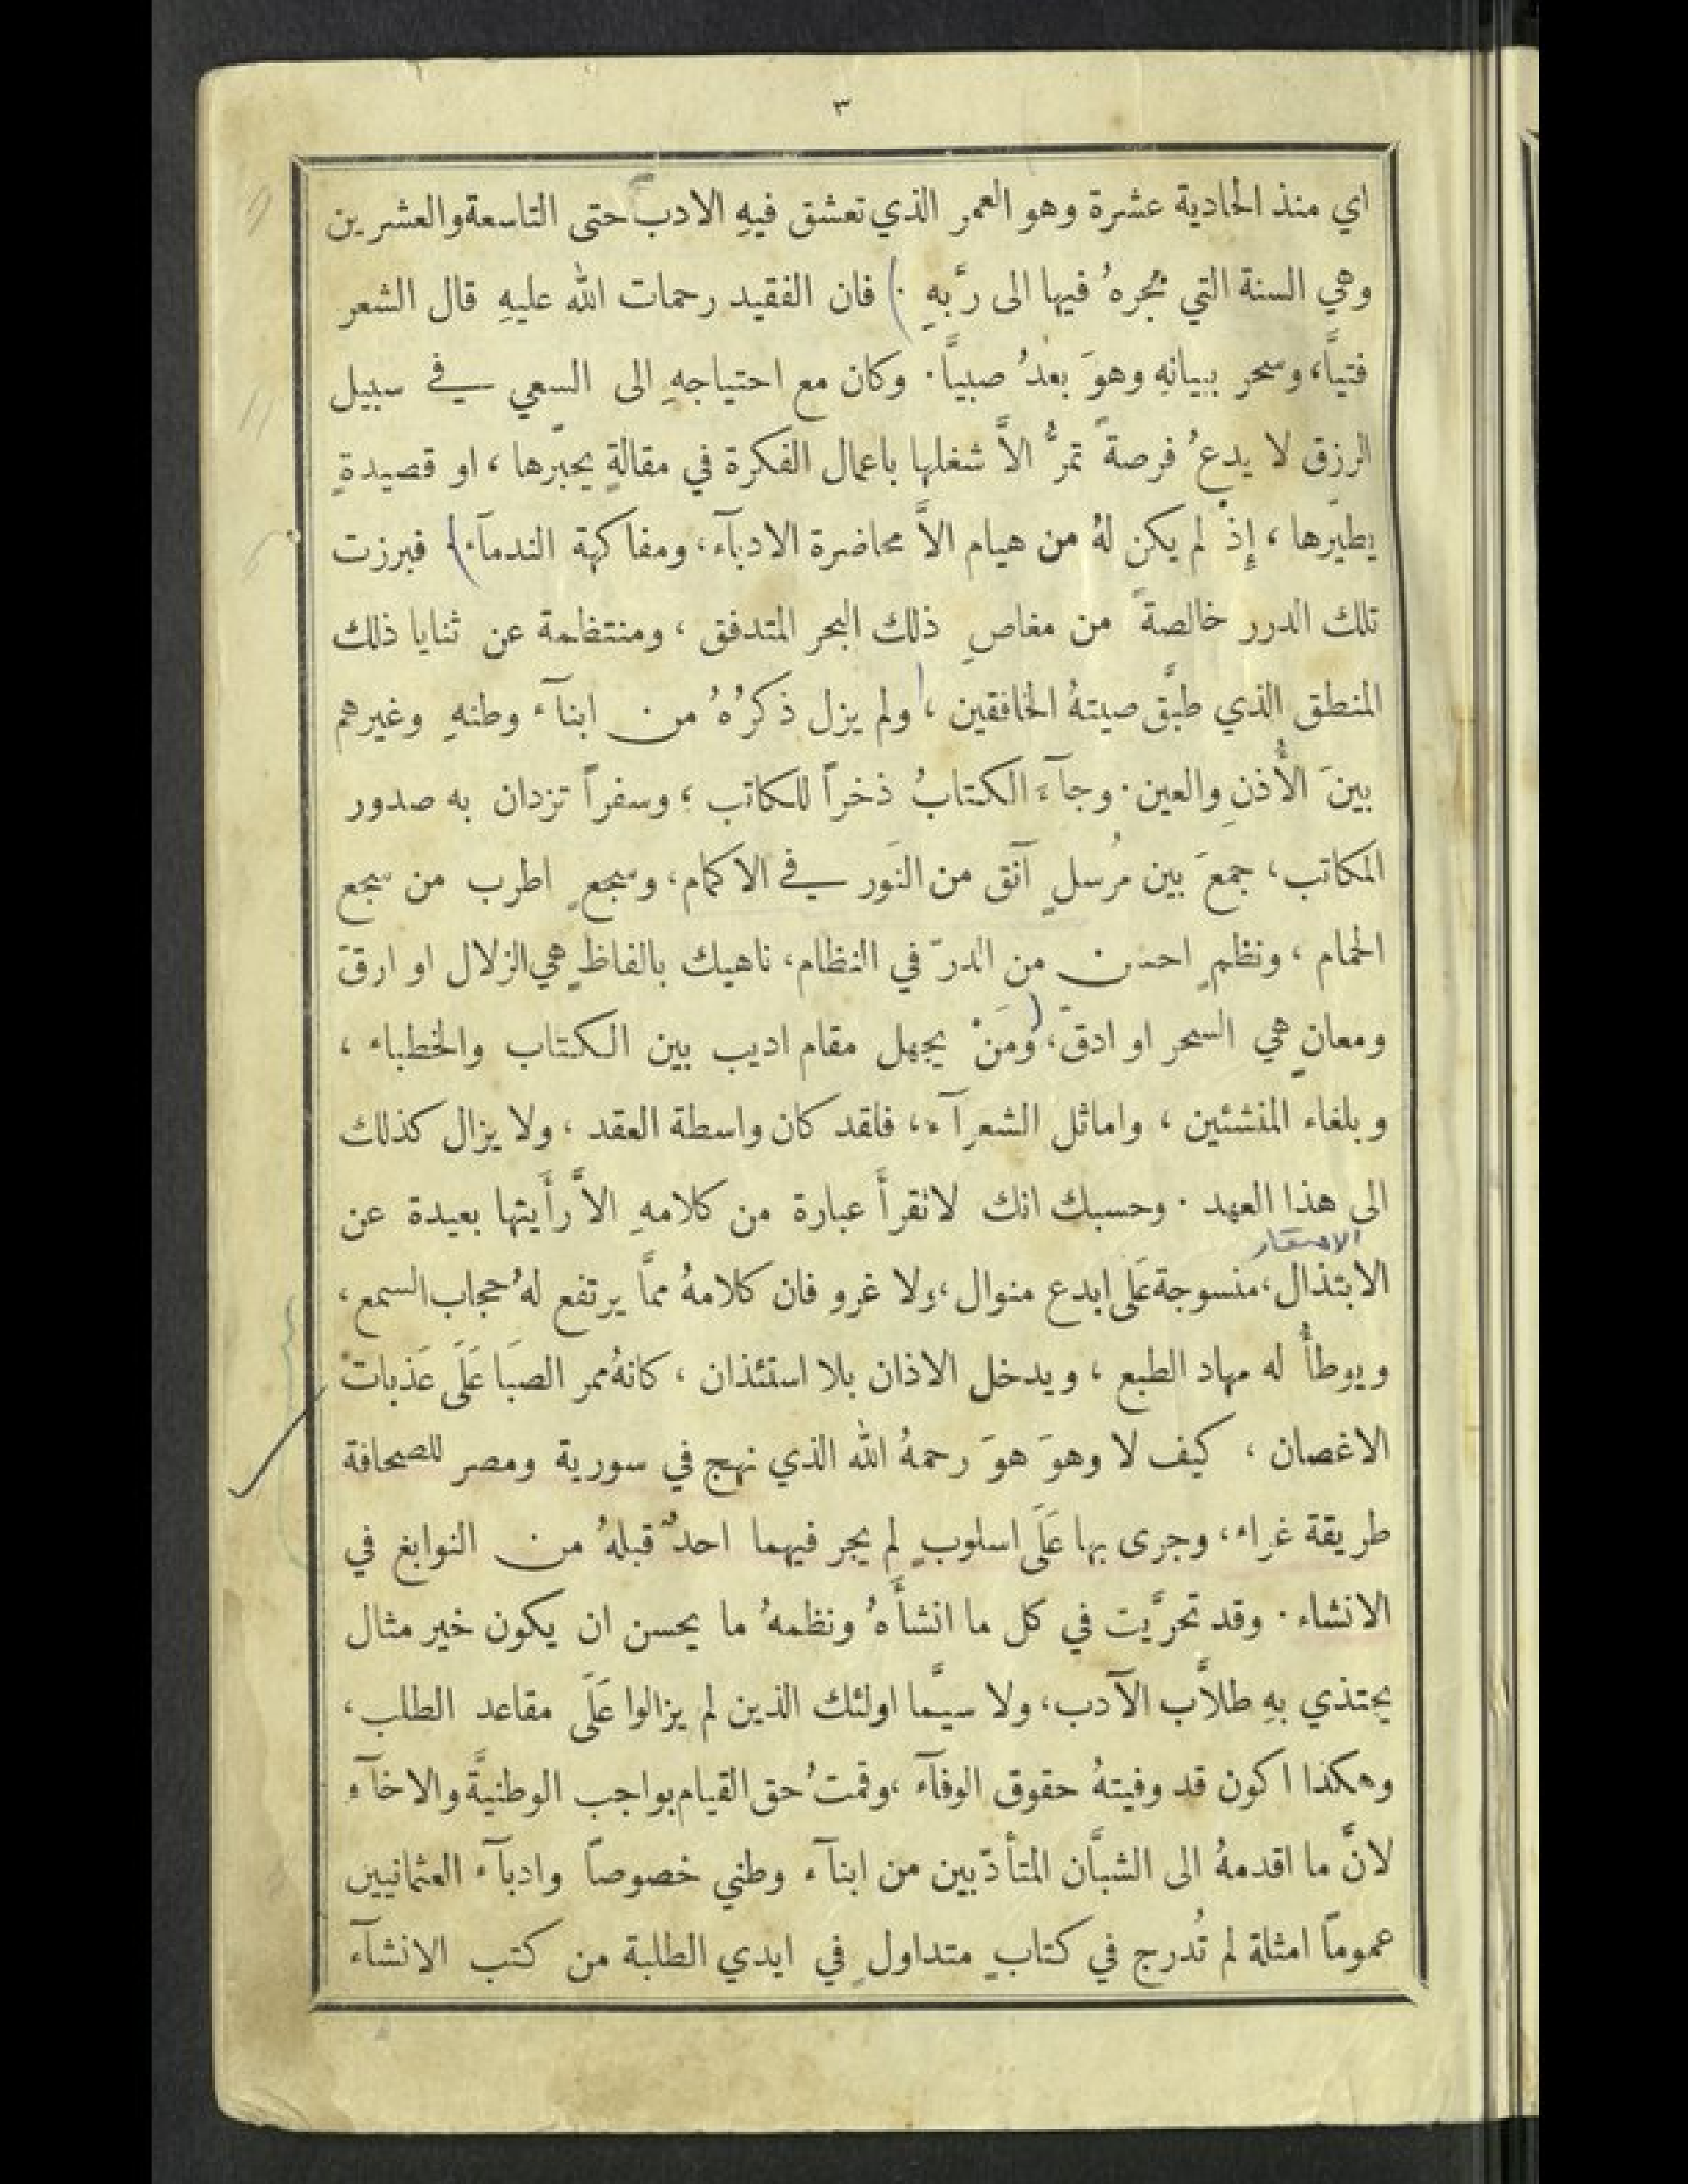 ٣
اي منذ الحادية عشرة وهو العمر الذي تعشق فيهِ الادب حتى التاسعة والعشرين
وهي السنة التي هجرهُ فيها الى ربّهِ ٠) فان الفقيد رحمات الله عليهِ قال الشعر
فتيًّا، وسحر ببيانهِ وهوَ بعدُ صبيًّا ٠ وكان مع احتياجهِ الى السعي في سبيل
الرزق لا يدعُ فرصةً تمرُّ الاَّ شغلها باعمال الفكرة في مقالةٍ يحبّرها ، او قصيدةٍ
يطيّرها ، إِذْ لم يكن لهُ من هيام الاَّ محاضرة الادبآء، ومفاكهة الندمآ٠) فبرزت
تلك الدرر خالصةً من مغاصِ ذلك البحر المتدفق ، ومنتظمة عن ثنايا ذلك
المنطق الذي طبَّق صيتهُ الخافقين ، ولم يزل ذكرُهُ من ابنآء وطنهِ وغيرهم
بينَ الأُذنِ والعين ٠ وجآءَ الكتابُ ذخراً للكاتب ؛ وسفراً تزدان به صدور
المكاتب ، جمعَ بين مُرسلٍ آنق من النَور في الاكمام ، وسجعٍ اطرب من سجع
الحمام ، ونظمٍ احسن من الدرّ في النظام، ناهيك بالفاظٍ هي الزلال او ارقّ
ومعانٍ هي السحر او ادقّ، (ومَنْ يجهل مقام اديب بين الكتاب والخطباء ،
وبلغاء المنشئين ، واماثل الشعرآء ، فلقد كان واسطة العقد ، ولا يزال كذلك
الى هذا العهد ٠ وحسبك انك لا تقرأُ عبارة من كلامهِ الاَّ رأَيتها بعيدة عن
الابتذال ، منسوجة عَلَى ابدع منوال ، ولا غرو فان كلامهُ ممَّا يرتفع لهُ حجاب السمع ،
ويوطأُ له مهاد الطبع ، ويدخل الاذان بلا استئذان ، كانهُ ممر الصَبا عَلَى عَذبات
الاغصان ، كيف لا وهوَ هوَ رحمهُ الله الذي نهج في سورية ومصر للصحافة
طريقة غراء ، وجرى بها عَلَى اسلوبٍ لم يجر فيهما احدٌ قبلهُ من النوابغ في
الانشاء ٠ وقد تحرَّيت في كل ما انشأَهُ ونظمهُ ما يحسن ان يكون خير مثال
يحتذي بهِ طلاَّب الآدب ، ولا سيَّما اولئك الذين لم يزالوا عَلَى مقاعد الطلب ،
وهكذا اكون قد وفيتهُ حقوق الوفآء ، وقمتُ حق القيام بواجب الوطنيَّة والاخآء
لانَّ ما اقدمهُ الى الشبَّان المتأدّبين من ابنآء وطني خصوصاً وادبآء العثمانيين
عموماً امثلة لم تُدرج في كتابٍ متداولٍ في ايدي الطلبة من كتب الانشآء